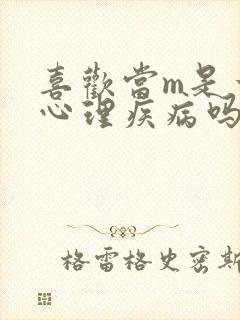 喜歡當m是
心理疾病吗
格雷格史密斯